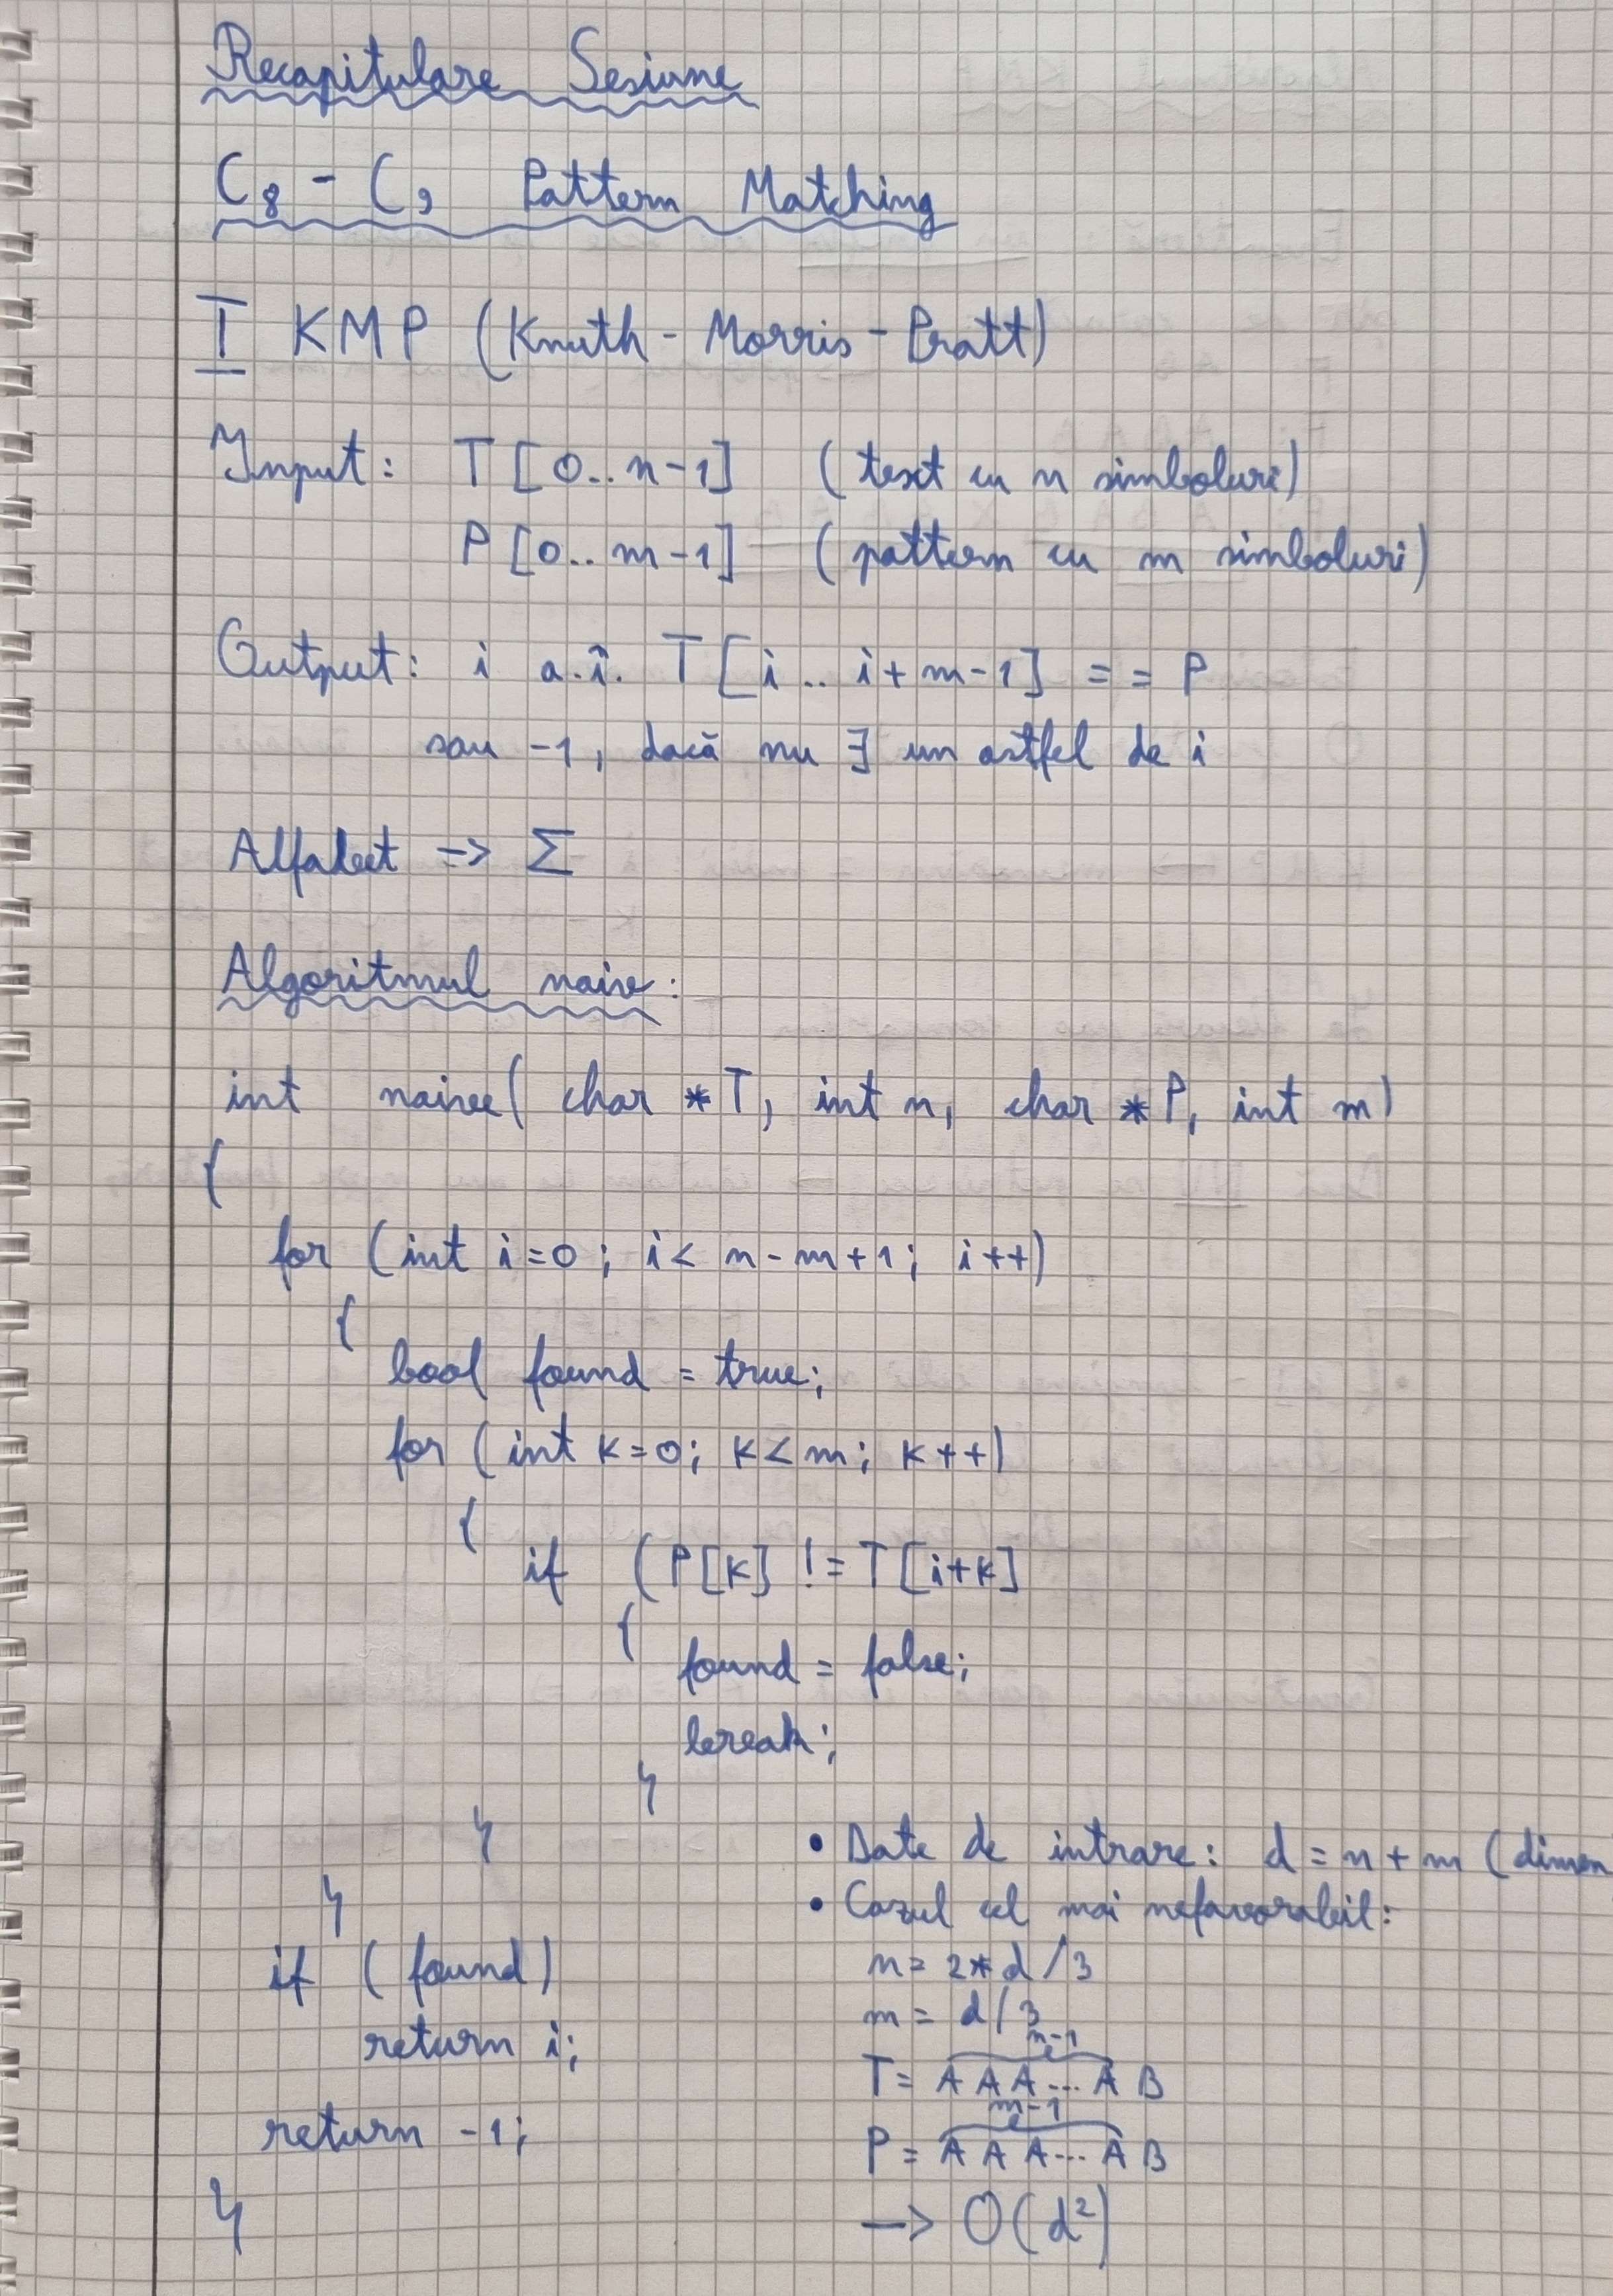 Recapitulare Sesiune
C8 - C9 Pattern Matching
I KMP (Knuth - Morris - Pratt)
Input: T[0..n-1] (text cu n simboluri)
P[0..m-1] (pattern cu m simboluri)
Output: i a.î. T[i.. i+m-1] == P
sau -1, dacă nu ∃ un astfel de i
Alfabet => Σ
Algoritmul naiv:
int naive( char *T, int n, char *P, int m)
{
for (int i=0; i< n-m+1; i++)
{
bool found = true;
for (int k=0; k<m; k++)
{
if (P[k] != T[i+k]
{
found = false;
break;
}
}
}
if (found)
return i;
return -1;
}
• Date de intrare: d = n + m (dimen
• Cazul cel mai nefavorabil:
n = 2*d/3
m = d/3
n-1
T = A A A ... A B
m-1
P = A A A ... A B
-> O(d²)